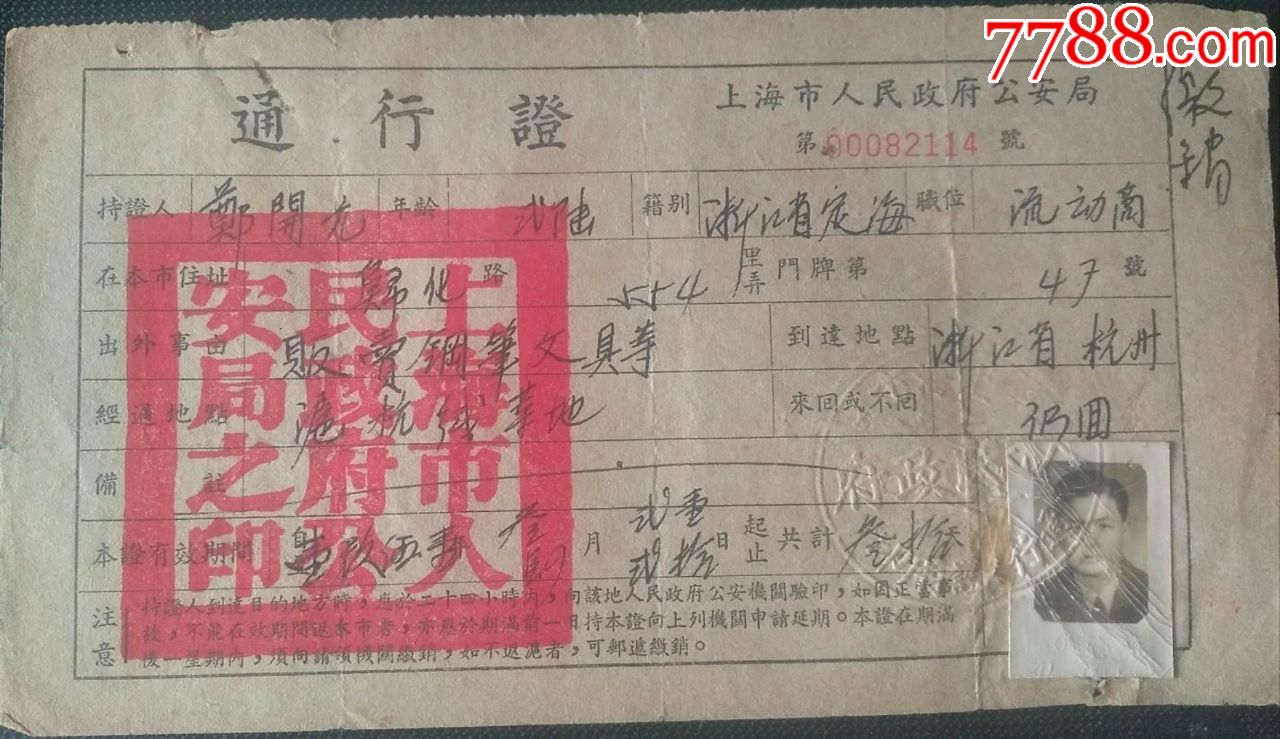 7788.com
上海市人民政府公安局
通行證
第00082114號
繳銷
持證人 鄭開 年齡 弍陆 籍别 浙江省定海 職位 流动商
在本市住址 歸化路 554 里弄 門牌第 47 號
出外事由 販賣鋼筆文具等 到達地點 浙江省 杭州
經過地點 滬杭线 地 來回或不回 仍回
備註
本證有效期間 自 玖伍 月 弍 日起 止 共計 叁拾天
弍拾
注意
持證人到達目的地方時,應於二十四小時內,向該地人民政府公安機關驗印,如因正當事
故,不能在效期間返本市者,亦應於期滿前一日持本證向上列機關申請延期。本證在期滿
後一星期內,須向請領機關繳銷,如不返滬者,可郵遞繳銷。
上海市人民政府公安局之印
府政